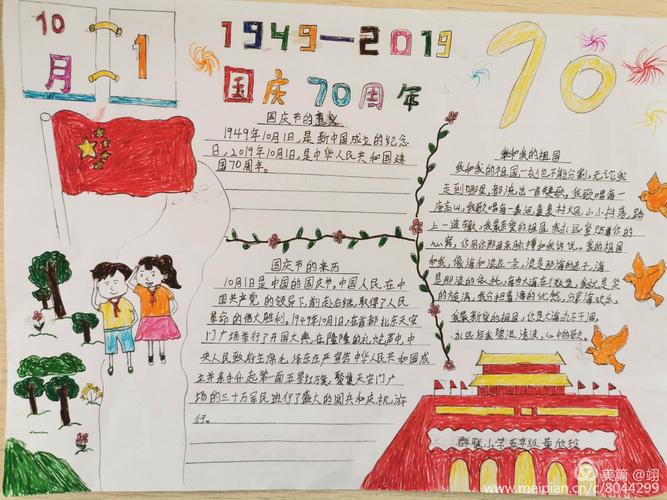 10
月
1
1949—2019
国庆70周年
70
国庆节的意义
1949年10月1日,是新中国成立的纪念
日,2019年10月1日,是中华人民共和国建
国70周年。
国庆节的来历
10月1日是中国的国庆节,中国人民在中
国共产党的领导下,前赴后继,取得了人民
革命的伟大胜利。1949年10月1日,在首都北京天安
门广场举行了开国大典,在隆隆的礼炮声中,中
央人民政府主席毛泽东在严宣告中华人民共和国成
立并亲手升起第一面五星红旗,聚集天安门广
场的三十万军民进行了盛大的阅兵和庆祝游
行。
我和我的祖国
我和我的祖国一刻也不能分割,无论我
走到哪里,都流出一首赞歌,我歌唱每一
座高山,我歌唱每一条河,袅袅村大囚,小小村落,路
上一道辙,我最亲爱的祖国,我永远紧贴着你的
心窝,你用你那母亲脉搏和我诉说。我的祖国
和我,像海和浪花一朵,浪是那海的赤子,海
是那浪的依托,每当大海在微笑,我就是笑
的旋涡,我分担着海的忧愁,分享海欢乐,
我最亲爱的祖国,你是大海永不干涸,
永远给我碧浪清波,心中的歌。
小学五年级 黄欣玲
美篇 @翊
www.meipian.cn/c/8044299